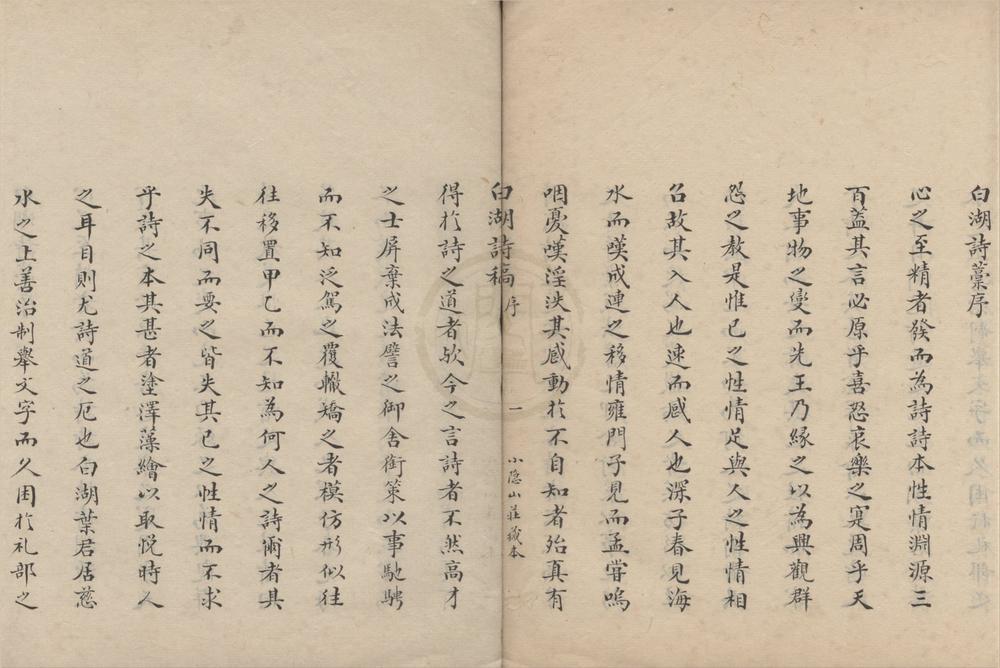 白湖詩藁序
心之至精者發而為詩詩本性情淵源三
百蓋其言必原乎喜怒哀樂之寔周乎天
地事物之變而先王乃緣之以為興觀群
怨之教是惟已之性情足與人之性情相
召故其入人也速而感人也深子春見海
水而嘆成連之移情雍門子見而孟嘗嗚
咽憂嘆淫泆其感動於不自知者殆真有
白湖詩稿 序 一 小隐山莊藏本
得於詩之道者欤今之言詩者不然高才
之士屏棄成法譬之御舍銜策以事馳騁
而不知泛駕之覆轍矯之者模仿形似往
往移置甲乙而不知為何人之詩爾者其
失不同而要之皆失其已之性情而不求
乎詩之本其甚者塗澤藻繪以取悅時人
之耳目則尤詩道之厄也白湖葉君居慈
水之上善治制舉文字而久困於礼部之